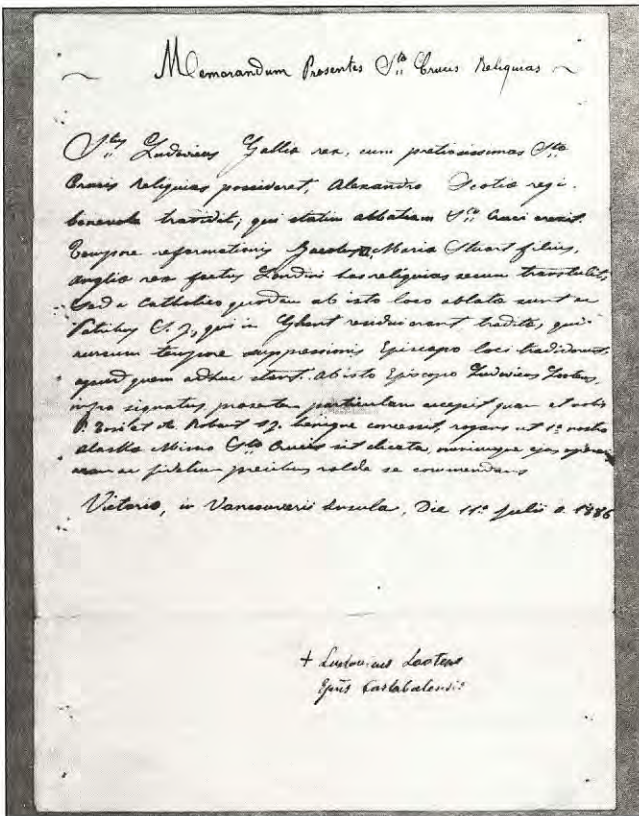 Memorandum Presentes Stae Crucis Reliquias
Stus Ludovicus Galliae rex, cum pretiosissimas Stae
Crucis Reliquias possideret, Alexandro Scotiae regi
benevole tradidit; qui statim abbatiam Stae Cruci erexit.
Tempore reformationis Jacobus Maria Stuart filius,
angliae rex factus Londini has reliquias secum transtulit,
sed a Catholico quodam ab isto loco ablatae sunt ac
Patribus S.J., qui in Ghent residui erant traditae, qui
rursum tempore suppressionis Episcopo loci tradiderunt,
apud quem adhuc stant. Ab isto Episcopo Ludovicus Lootens,
infra signatus, presentem particulam accepit quam et nobis
P. Tosi et de Robaut SJ. benigne concessit, rogans ut 1a nostra
Alaska Missio Stae Crucis sit dicata,
ac fidelium precibus valde se commendans
Victoria, in Vancouverii Insula, Die 11a Julii a. 1886
+ Ludovicus Lootens
Epūs Castabalensis